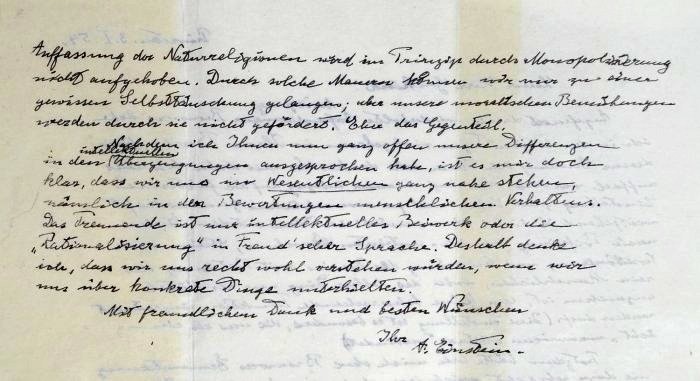 Auffassung der Naturreligionen wird im Prinzip durch Monopolisierung
nicht aufgehoben. Durch solche Mauern können wir nur zu einer
gewissen Selbsttäuschung gelangen; aber unsere moralischen Bemühungen
werden durch sie nicht gefördert. Eher das Gegenteil.
Nachdem ich Ihnen nun ganz offen unsere Differenzen
in den intellektuellen Überzeugungen ausgesprochen habe, ist es mir doch
klar, dass wir uns im Wesentlichen ganz nahe stehen,
nämlich in den Bewertungen menschlichen Verhaltens.
Das Trennende ist nur intellektuelles Beiwerk oder die
„Rationalisierung" in Freud'scher Sprache. Deshalb denke
ich, dass wir uns recht wohl verstehen würden, wenn wir
uns über konkrete Dinge unterhielten.
Mit freundlichem Dank und besten Wünschen
Ihr
A. Einstein.